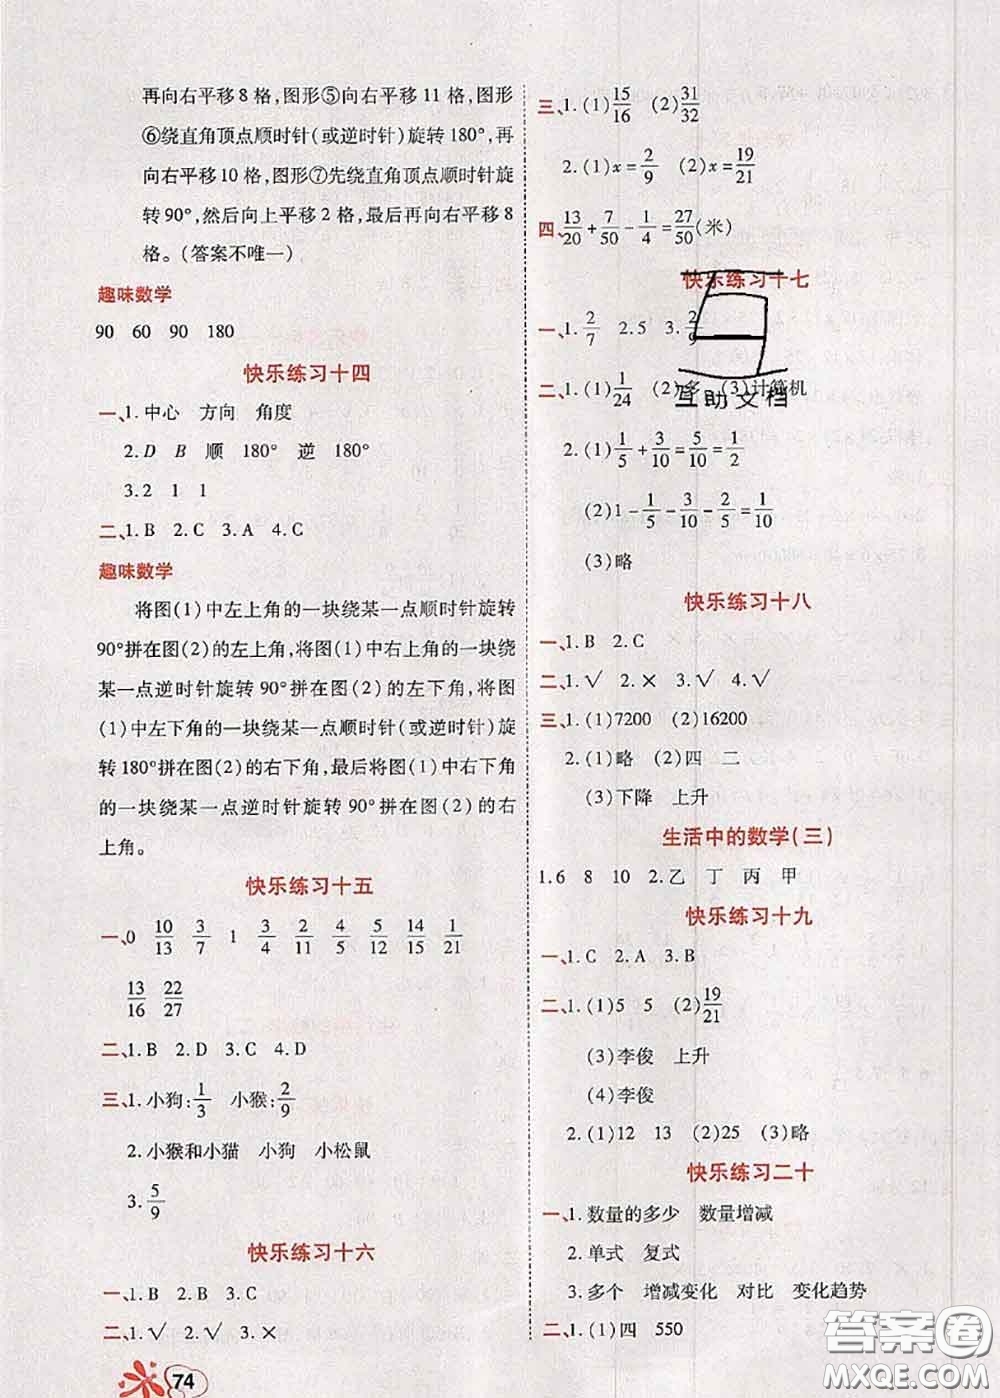 再向右平移8格,图形⑤向右平移11格,图形
⑥绕直角顶点顺时针(或逆时针)旋转180°,再
向右平移10格,图形⑦先绕直角顶点顺时针旋
转90°,然后向上平移2格,最后再向右平移8
格。(答案不唯一)
趣味数学
90 60 90 180
快乐练习十四
一、1.中心 方向 角度
2.D B 顺 180° 逆 180°
3.2 1 1
二、1.B 2.C 3.A 4.C
趣味数学
将图(1)中左上角的一块绕某一点顺时针旋转
90°拼在图(2)的左上角,将图(1)中右上角的一块绕
某一点逆时针旋转90°拼在图(2)的左下角,将图
(1)中左下角的一块绕某一点顺时针(或逆时针)旋
转180°拼在图(2)的右下角,最后将图(1)中右下角
的一块绕某一点逆时针旋转90°拼在图(2)的右
上角。
快乐练习十五
一、0 10/13 3/7 1 3/4 2/11 4/5 5/12 14/15 1/21
13/16 22/27
二、1.B 2.D 3.C 4.D
三、1.小狗:1/3 小猴:2/9
2.小猴和小猫 小狗 小松鼠
3.5/9
快乐练习十六
一、1.B 2.B 3.C
二、1.√ 2.√ 3.×
74
三、1.(1)15/16 (2)31/32
2.(1)x=2/9 (2)x=19/21
四、13/20+7/50-1/4=27/50(米)
快乐练习十七
一、1.2/7 2.5 3.2/9
二、1.(1)1/24 (2)多 (3)计算机
互助文档
2.(1)1/5+3/10=5/10=1/2
(2)1-1/5-3/10-2/5=1/10
(3)略
快乐练习十八
一、1.B 2.C
二、1.√ 2.× 3.√ 4.√
三、1.(1)7200 (2)16200
2.(1)略 (2)四 二
(3)下降 上升
生活中的数学(三)
1.6 8 10 2.乙 丁 丙 甲
快乐练习十九
一、1.C 2.A 3.B
二、1.(1)5 5 (2)19/21
(3)李俊 上升
(4)李俊
2.(1)12 13 (2)25 (3)略
快乐练习二十
一、1.数量的多少 数量增减
2.单式 复式
3.多个 增减变化 对比 变化趋势
二、1.(1)四 550
答案圈
MXQE.COM